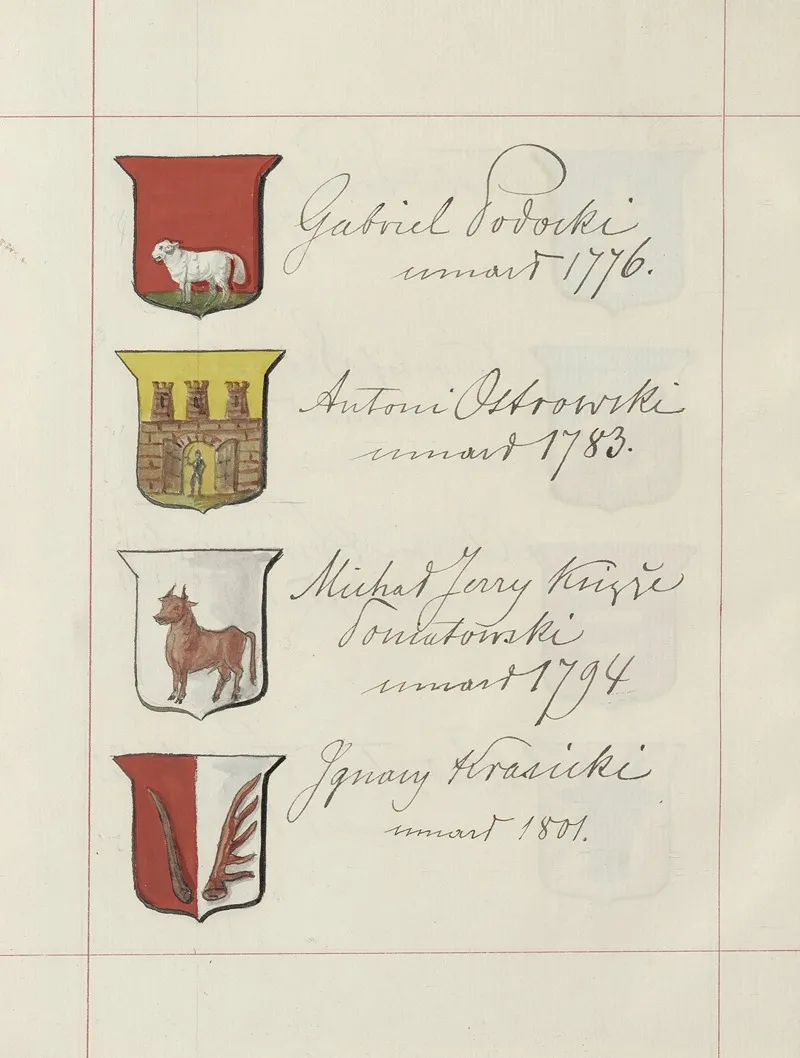 Gabriel Podocki
umarł 1776.
Antoni Ostrowski
umarł 1783.
Michał Jerzy Książe
Poniatowski
umarł 1794
Ignacy Krasicki
umarł 1801.